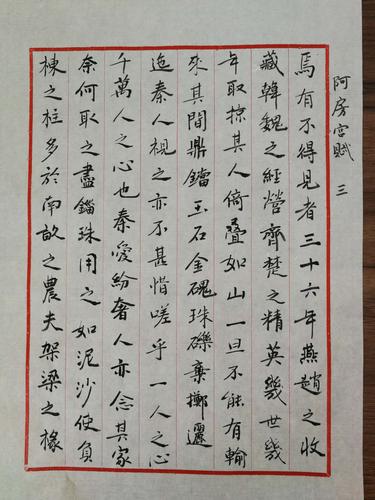 阿房宮賦 三
焉有不得見者三十六年燕趙之收
藏韓魏之經營齊楚之精英幾世幾
年取掠其人倚疊如山一旦不能有輸
來其間鼎鐺玉石金塊珠礫棄擲邐
迤秦人視之亦不甚惜嗟乎一人之心
千萬人之心也秦愛紛奢人亦念其家
奈何取之盡錙珠用之如泥沙使負
棟之柱多於南畝之農夫架梁之椽